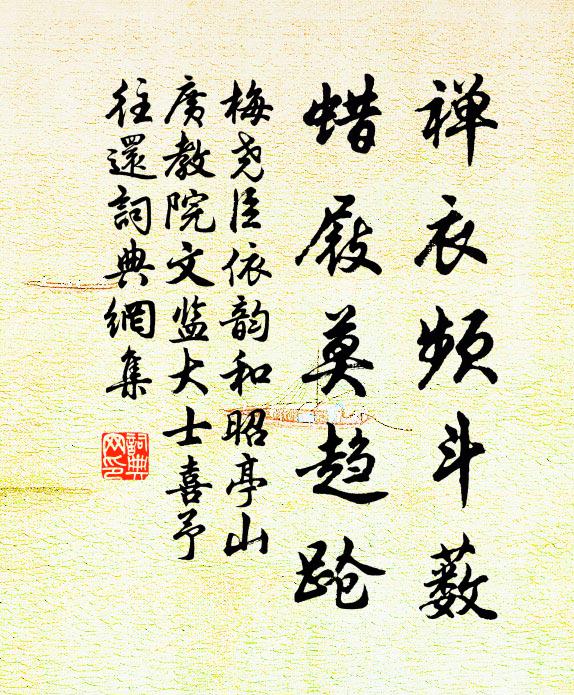 禅衣频斗薮
蜡屐莫趋跄
梅尧臣依韵和昭亭山
广教院文鉴大士喜予
往還詞典網集
詞典网印